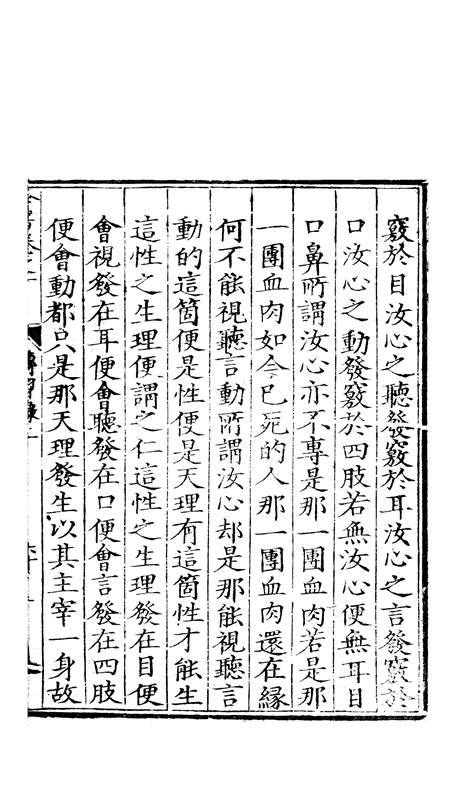 竅於目汝心之聽發竅於耳汝心之言發竅於
口汝心之動發竅於四肢若無汝心便無耳目
口鼻所謂汝心亦不專是那一團血肉若是那
一團血肉如今已死的人那一團血肉還在緣
何不能視聽言動所謂汝心却是那能視聽言
動的這箇便是性便是天理有這箇性才能生
這性之生理便謂之仁這性之生理發在目便
會視發在耳便會聽發在口便會言發在四肢
便會動都只是那天理發生以其主宰一身故